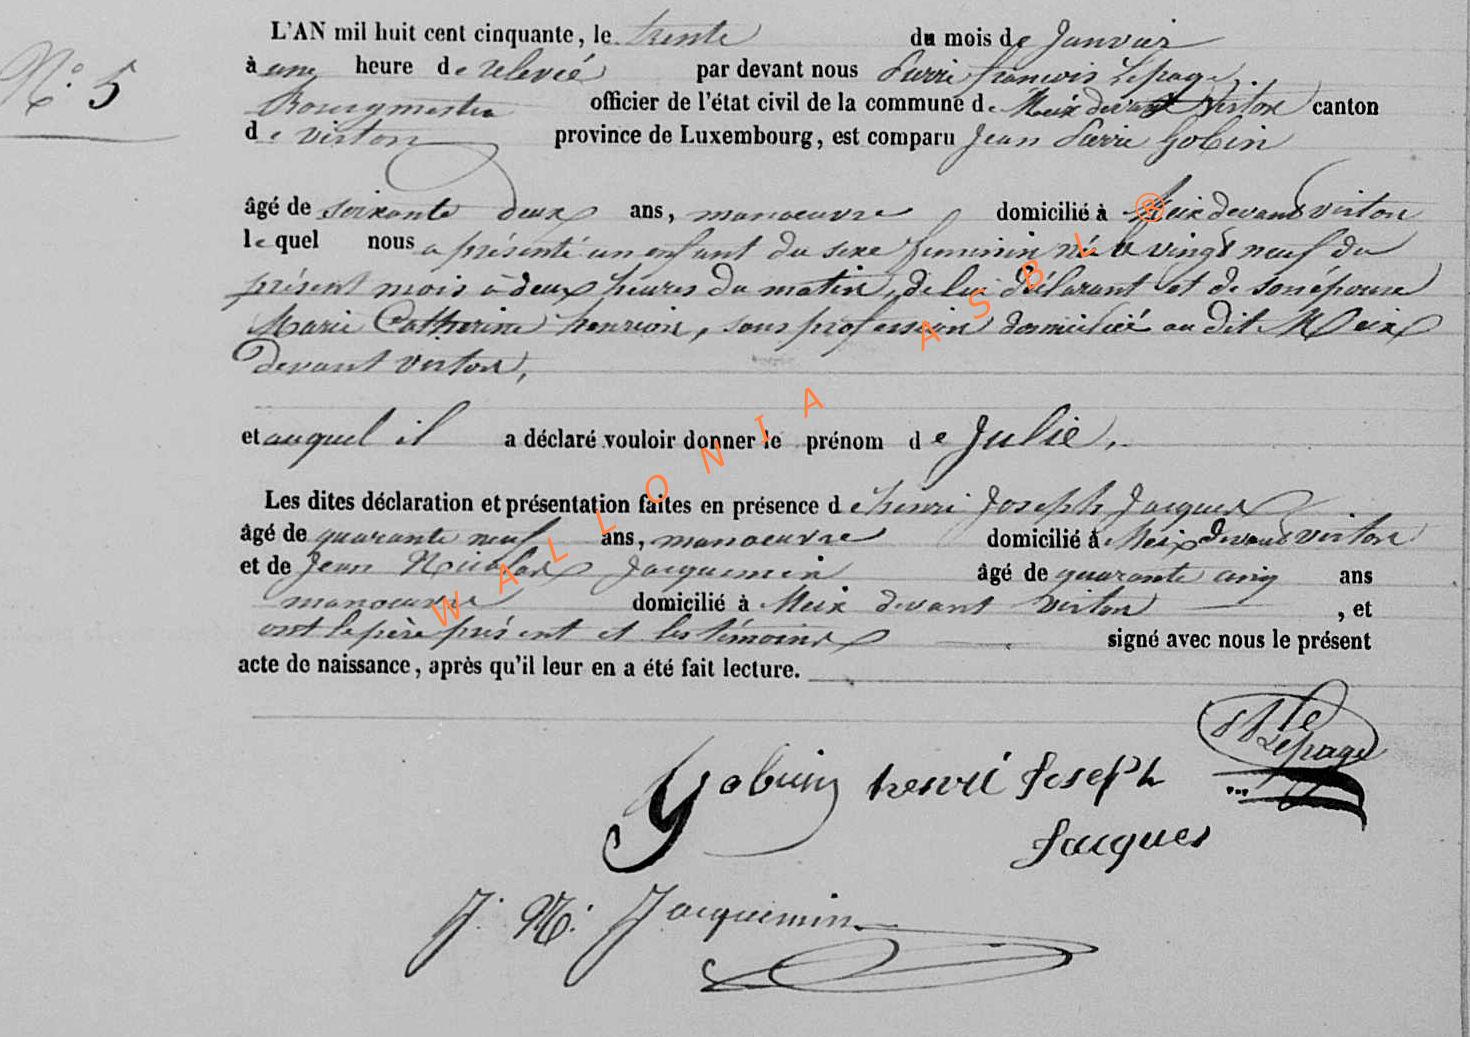 N° 5
L'AN mil huit cent cinquante, le trente du mois de Janvier
à une heure de relevée par devant nous Pierre françois Lepage,
Bourgmestre officier de l'état civil de la commune de Meix devant Virton canton
de virton province de Luxembourg, est comparu Jean Pierre Gobin
âgé de soixante deux ans, manoeuvre domicilié à Meix devant virton
lequel nous a présenté un enfant du sexe feminin né le vingt neuf du
présent mois à deux heures du matin, de lui déclarant et de son épouse
Marie Catherine henrion, sans profession domiciliée au dit Meix
devant virton,
et auquel il a déclaré vouloir donner le prénom de Julie,
Les dites déclaration et présentation faites en présence de henri Joseph Jacques
âgé de quarante neuf ans, manoeuvre domicilié à Meix devant virton
et de Jean Nicolas Jacquemin âgé de quarante cinq ans
manoeuvre domicilié à Meix devant virton , et
ont le père présent et les témoins signé avec nous le présent
acte de naissance, après qu'il leur en a été fait lecture.
Lepage
Gobin henri Joseph
Jacques
J. N. Jacquemin
WALLONIA ASBL ®